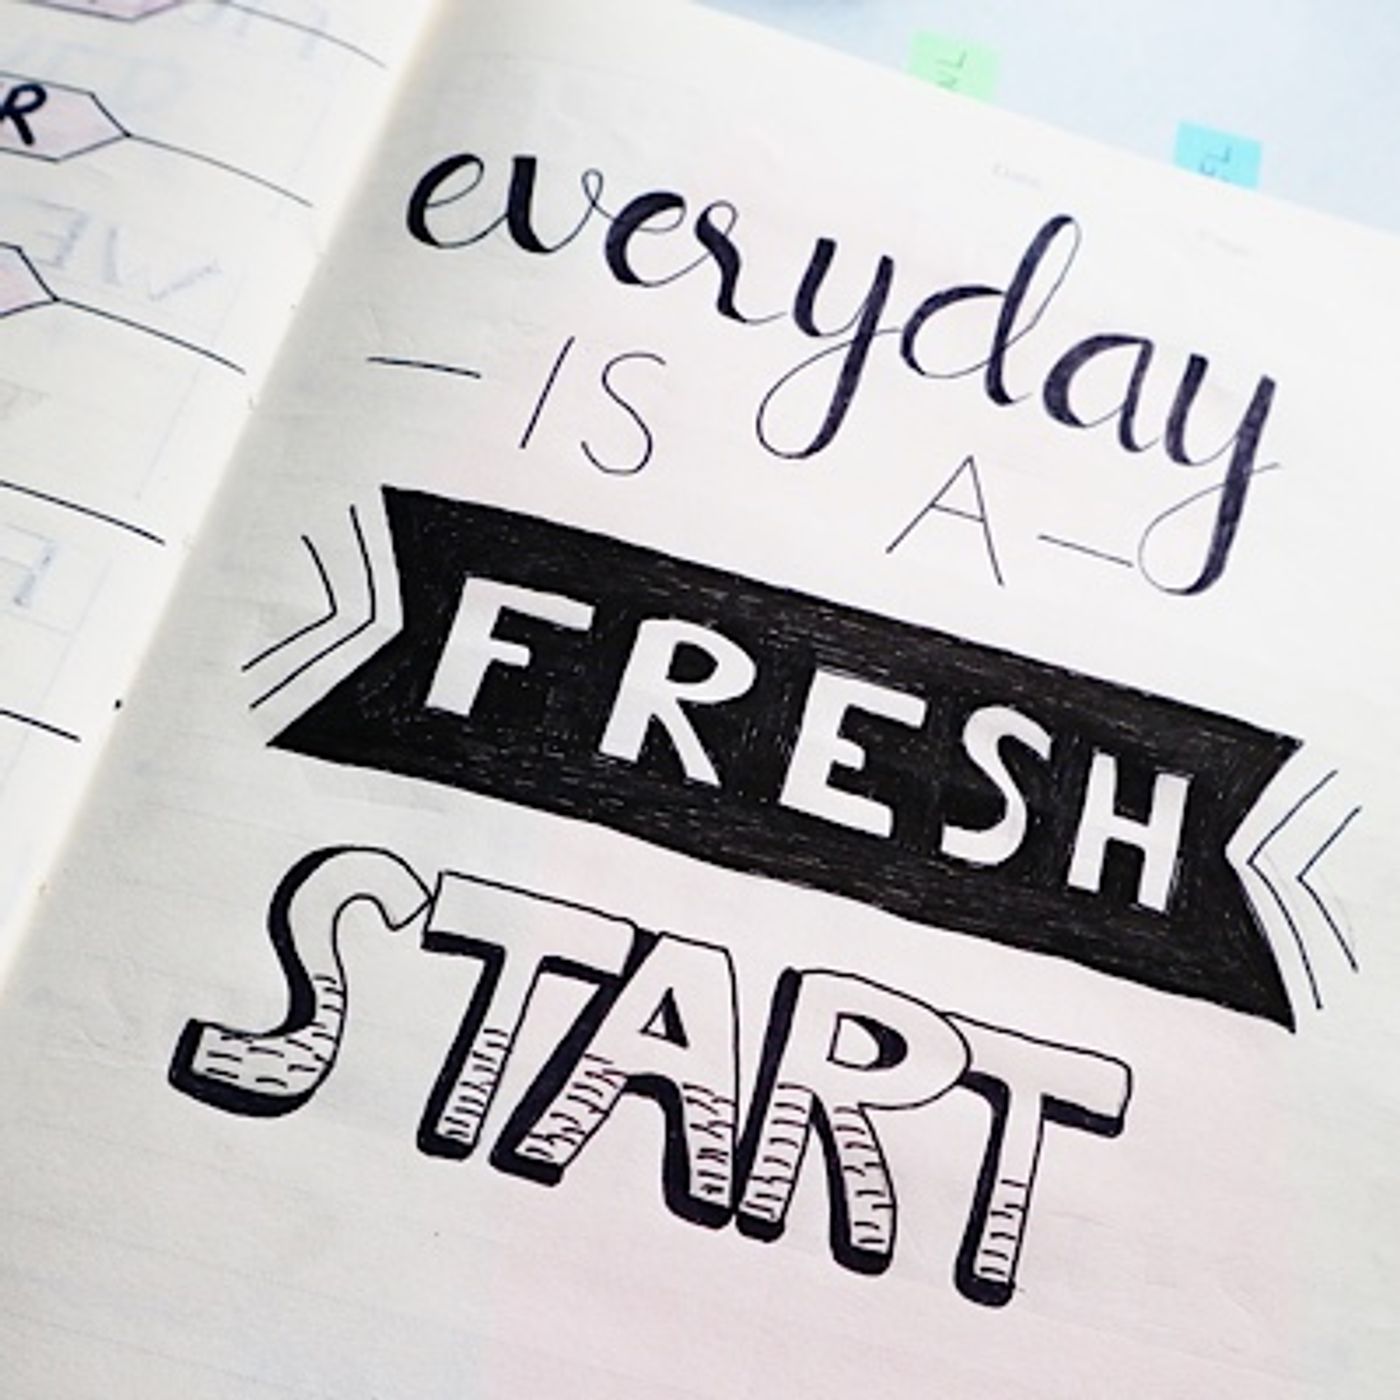 everyday
— IS A —
FRESH
START
R